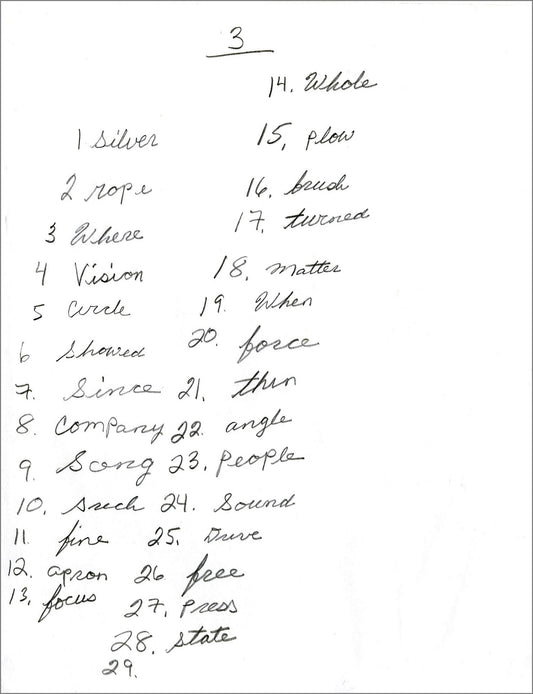 3
1 Silver
2 rope
3 Where
4 Vision
5 Circle
6 Showed
7. Since
8. Company
9. Song
10. such
11. fine
12. apron
13. focus
14. Whole
15. plow
16. brush
17. turned
18. matter
19. When
20. force
21. thin
22. angle
23. People
24. Sound
25. Drive
26 free
27. Press
28. State
29.